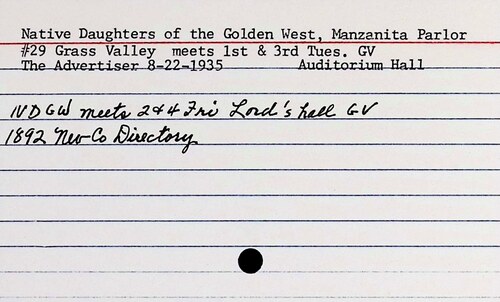 Native Daughters of the Golden West, Manzanita Parlor
#29 Grass Valley meets 1st & 3rd Tues. GV
The Advertiser 8-22-1935 Auditorium Hall
NDGW meets 2 & 4 Fri Lord's hall GV
1892 Nev Co Directory